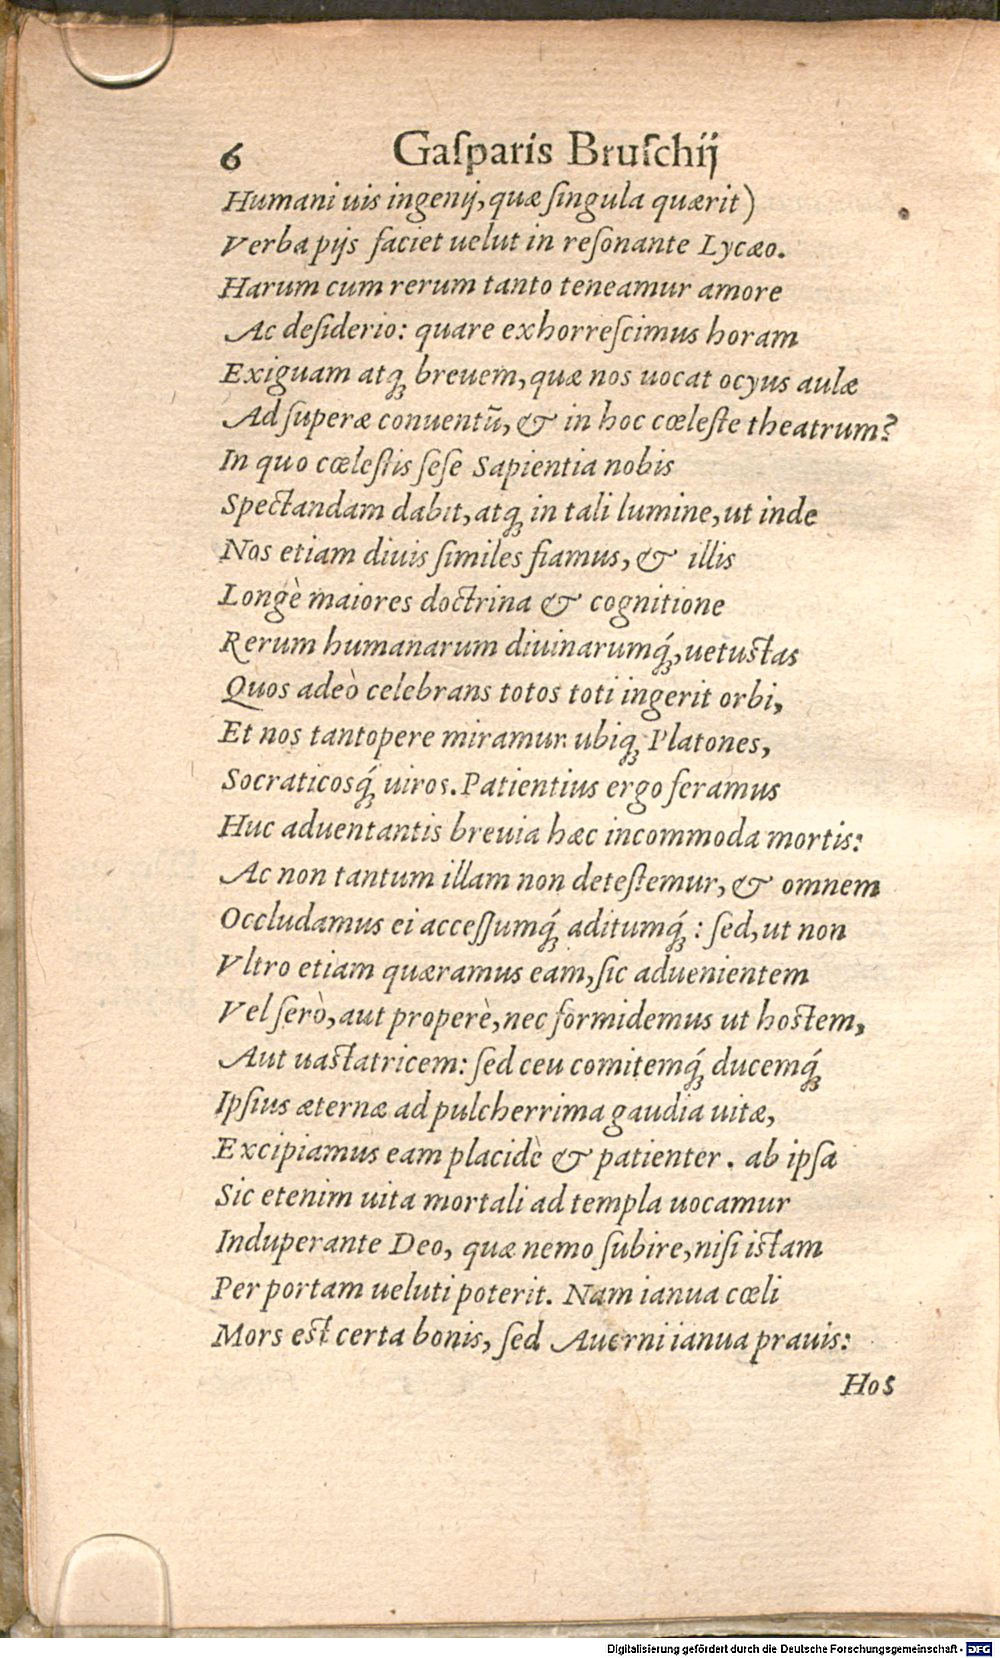 6 Gaſparis Bruſchij
Humani uis ingenij, quæ ſingula quærit)
Verba pijs faciet uelut in reſonante Lycæo.
Harum cum rerum tanto teneamur amore
Ac deſiderio: quare exhorreſcimus horam
Exiguam atq; breuem, quæ nos uocat ocyus aulæ
Ad ſuperæ conuentū, & in hoc cœleſte theatrum?
In quo cœleſtis ſeſe Sapientia nobis
Spectandam dabit, atq; in tali lumine, ut inde
Nos etiam diuis ſimiles fiamus, & illis
Longè maiores doctrina & cognitione
Rerum humanarum diuinarumq́;, uetustas
Quos adeò celebrans totos toti ingerit orbi,
Et nos tantopere miramur ubiq; Platones,
Socraticosq́; uiros. Patientius ergo feramus
Huc aduentantis breuia hæc incommoda mortis:
Ac non tantum illam non deteſtemur, & omnem
Occludamus ei acceſſumq́; aditumq́;: ſed, ut non
Vltro etiam quæramus eam, ſic aduenientem
Vel ſerò, aut properè, nec formidemus ut hostem,
Aut uastatricem: ſed ceu comitemq́; ducemq́;
Ipſius æternæ ad pulcherrima gaudia uitæ,
Excipiamus eam placidè & patienter. ab ipſa
Sic etenim uita mortali ad templa uocamur
Induperante Deo, quæ nemo ſubire, niſi istam
Per portam ueluti poterit. Nam ianua cœli
Mors est certa bonis, ſed Auerni ianua prauis:
Hos
Digitalisierung gefördert durch die Deutsche Forschungsgemeinschaft - DFG